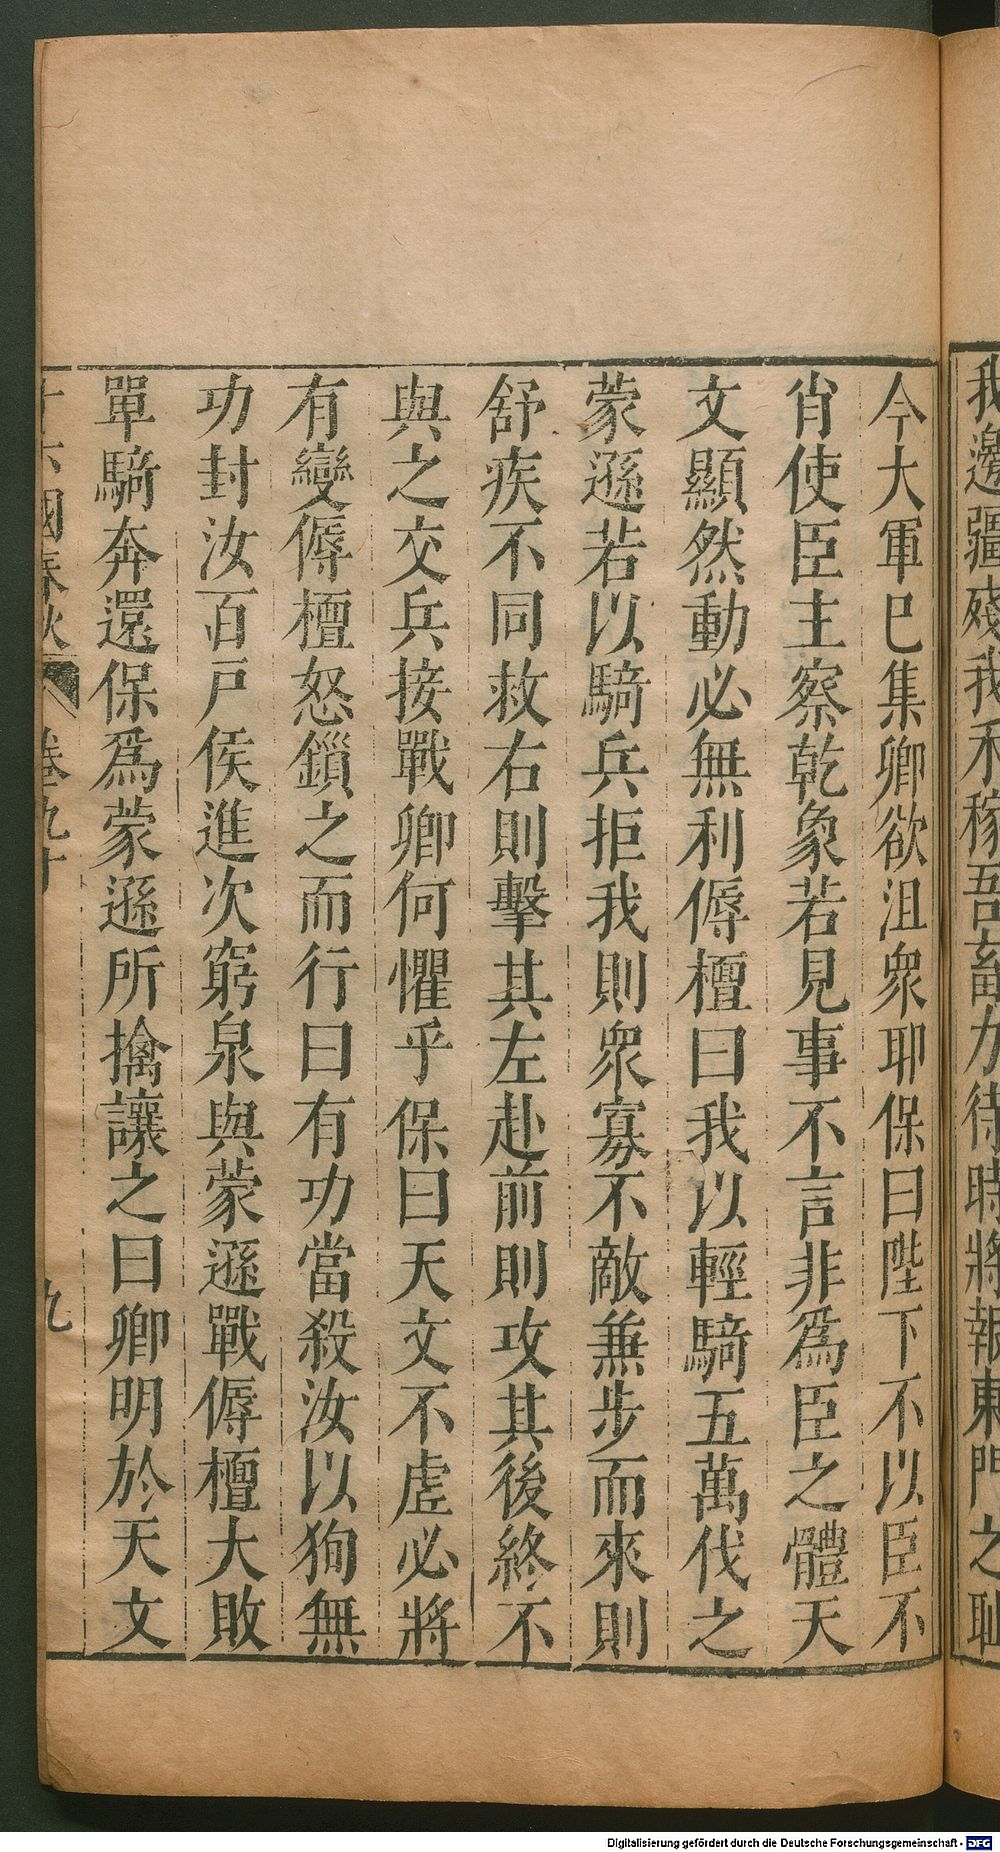 我邊疆殘我禾稼吾畜力待時將報東門之恥
今大軍巳集卿欲沮衆耶保曰陛下不以臣不
肖使臣主察乾象若見事不言非爲臣之體天
文顯然動必無利傉檀曰我以輕騎五萬伐之
蒙遜若以騎兵拒我則衆寡不敵兼步而來則
舒疾不同救右則擊其左赴前則攻其後終不
與之交兵接戰卿何懼乎保曰天文不虛必將
有變傉檀怒鎖之而行曰有功當殺汝以狥無
功封汝百戸侯進次窮泉與蒙遜戰傉檀大敗
單騎奔還保爲蒙遜所擒讓之曰卿明於天文
十六國春秋 卷九十 九
Digitalisierung gefördert durch die Deutsche Forschungsgemeinschaft - DFG